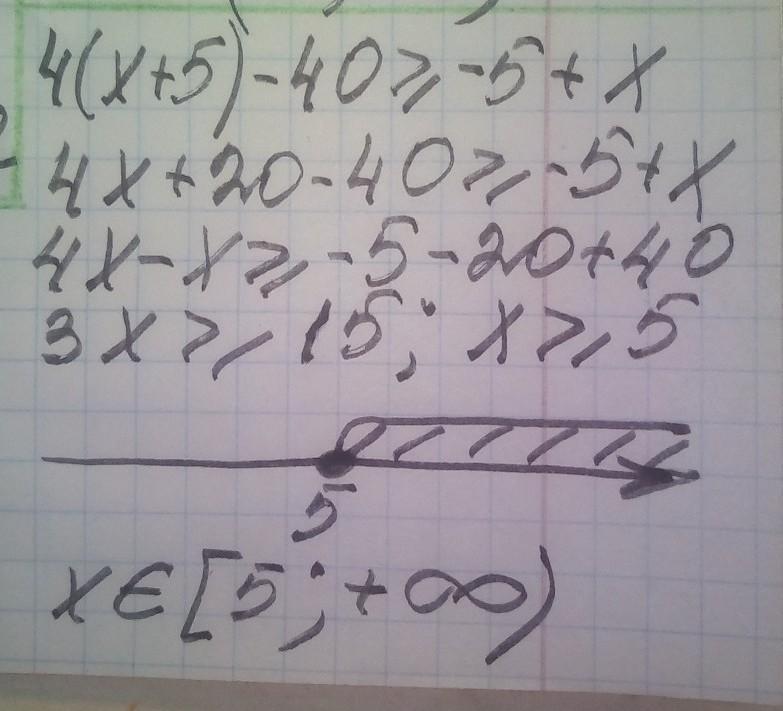 4(x+5)-40⩾-5+x
4x+20-40⩾-5+x
4x-x⩾-5-20+40
3x⩾15; x⩾5
5
x∈[5;+∞)